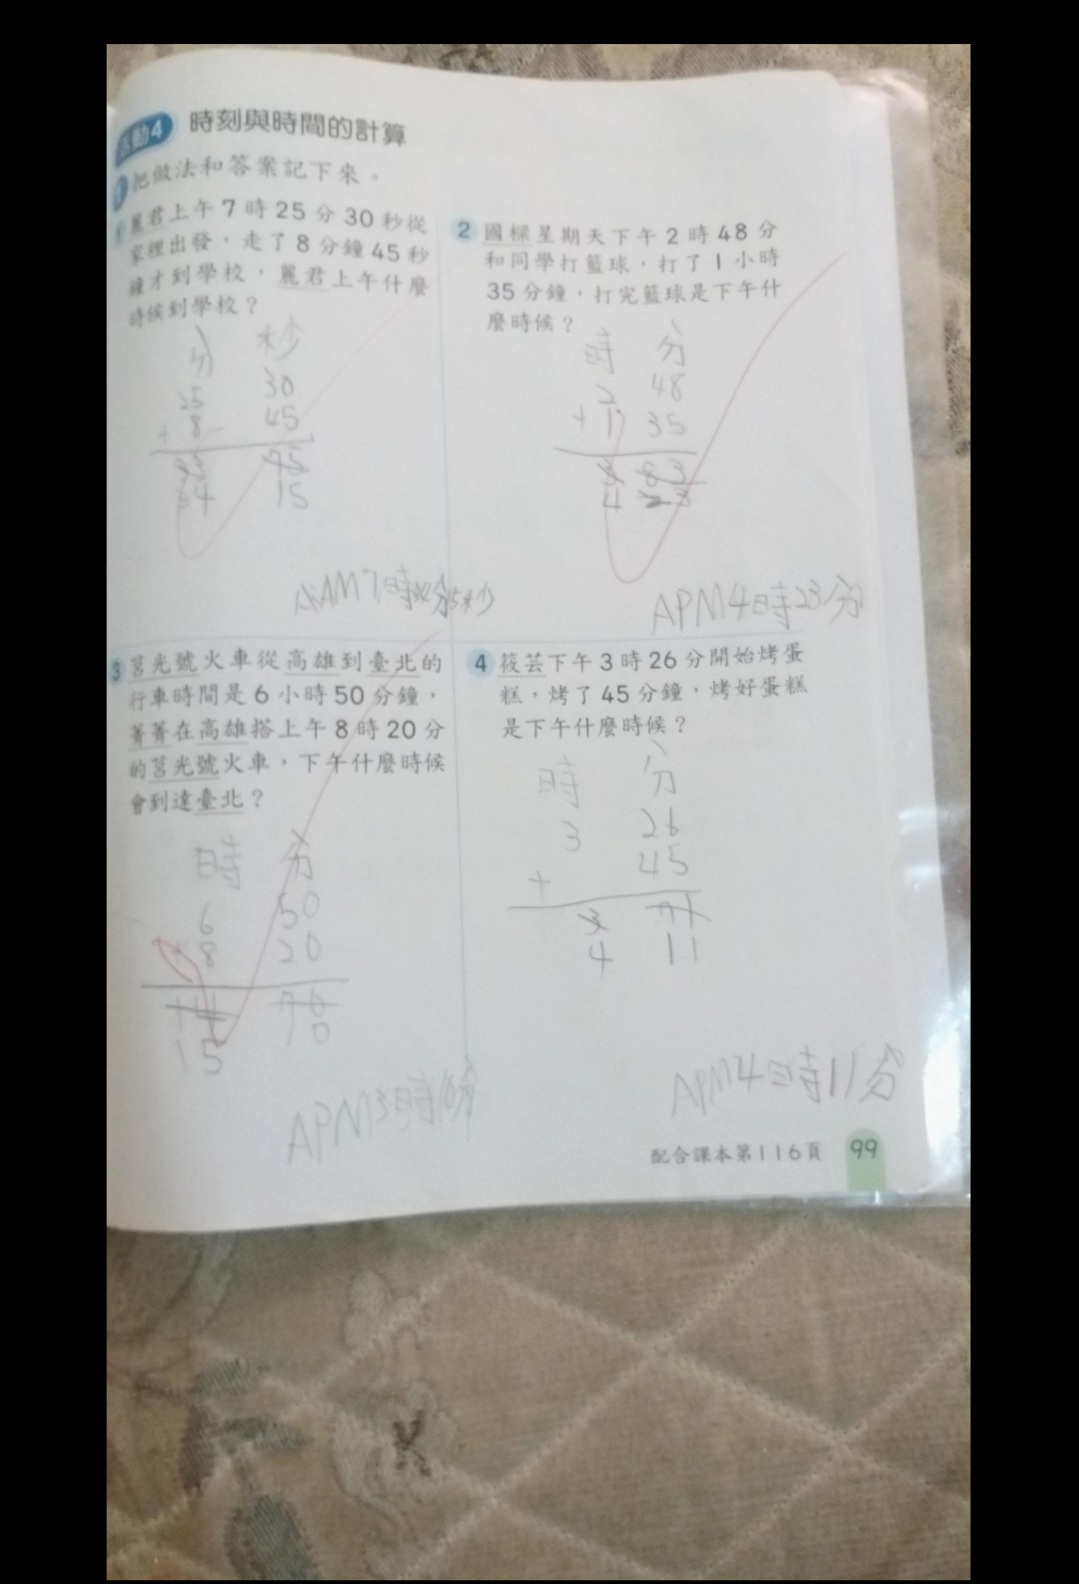 活動4 時刻與時間的計算
1 把做法和答案記下來。
1 麗君上午7時25分30秒從
家裡出發，走了8分鐘45秒
鐘才到學校，麗君上午什麼
時候到學校？
分 秒
25 30
+ 8 45
33 75
34 15
AM7時34分15秒
2 國樑星期天下午2時48分
和同學打籃球，打了1小時
35分鐘，打完籃球是下午什
麼時候？
時 分
2 48
+ 1 35
3 83
4 23
A PM4時23分
3 莒光號火車從高雄到臺北的
行車時間是6小時50分鐘，
菁菁在高雄搭上午8時20分
的莒光號火車，下午什麼時候
會到達臺北？
時 分
6 50
+ 8 20
14 70
15 10
A PM3時10分
4 筱芸下午3時26分開始烤蛋
糕，烤了45分鐘，烤好蛋糕
是下午什麼時候？
時 分
3 26
+ 45
3 71
4 11
A PM4時11分
配合課本第116頁 99